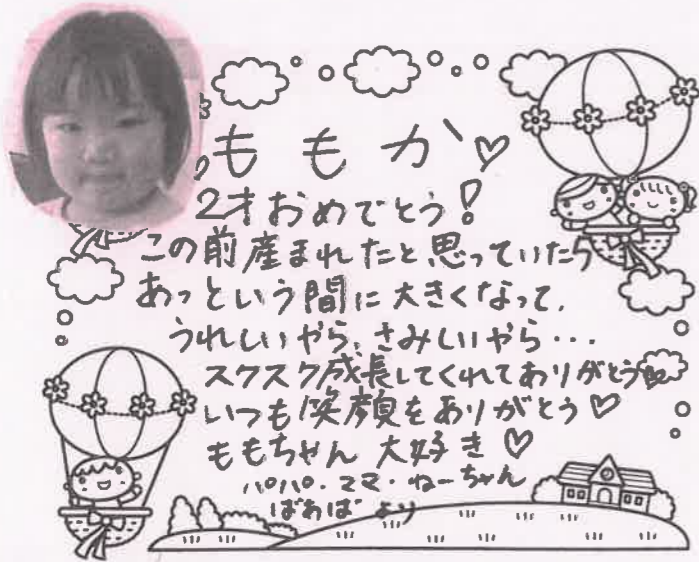 ももか♡
2才おめでとう!
この前産まれたと思っていたら
あっという間に大きくなって、
うれしいやら、さみしいやら…
スクスク成長してくれてありがとう
いつも笑顔をありがとう♡
ももちゃん 大好き♡
パパ・ママ・ねーちゃん
ばあば より